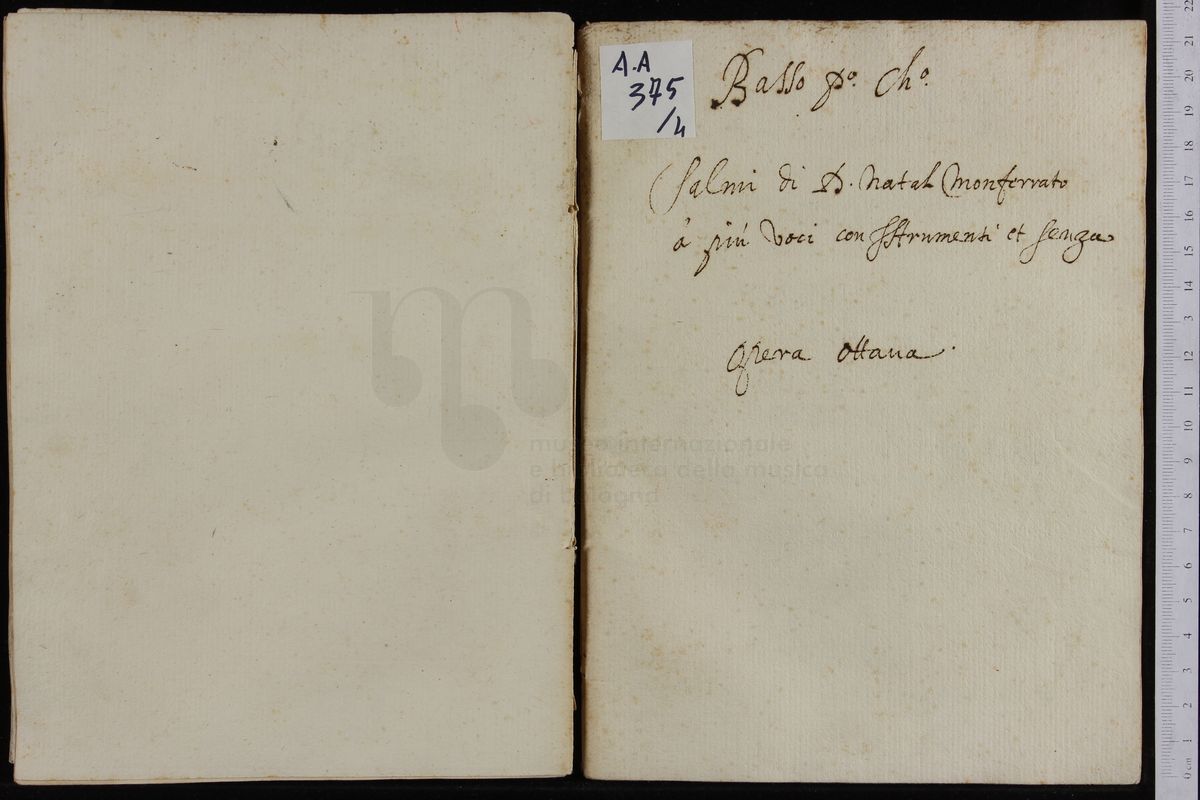 A.A
375
/4
Basso pº. Chº.
Salmi di D. Natal Monferrato
à più Voci con Istrumenti et senza
Opera Ottaua.
museo internazionale
e biblioteca della musica
di bologna
22
21
20
19
18
17
16
15
14
3
12
11
10
9
8
7
6
5
4
3
2
1
0 cm